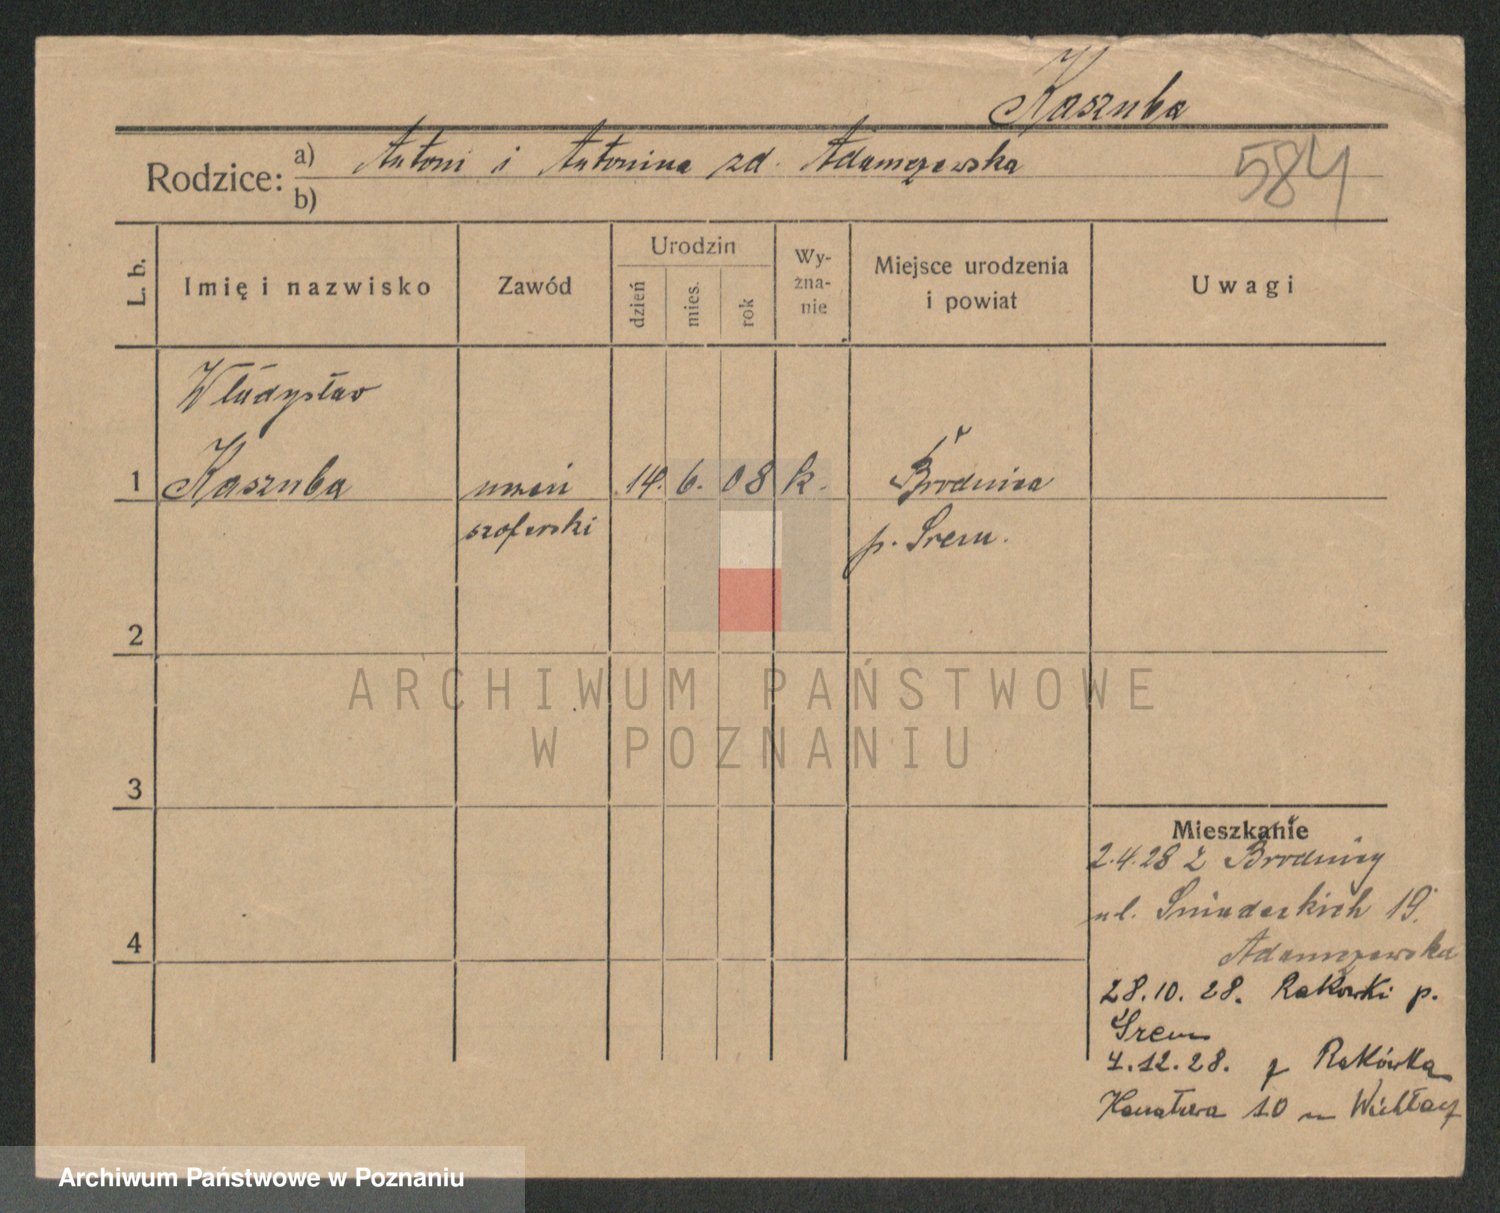 Kaszuba
Rodzice: a) Antoni i Antonina zd. Adamczewska
b)
584
L. b. Imię i nazwisko Zawód Urodzin dzień mies. rok Wy-
żna-
nie Miejsce urodzenia
i powiat Uwagi
Władysław
1 Kaszuba uczeń 14. 6. 08 k. Brodnica
szoferski p. Śrem.
2
3
4
Mieszkanie
2.4.28 z Brodnicy
ul. Śniadeckich 19.
Adamczewska
28.10.28. Rakówki p.
Śrem
4.12.28. z Rakówka
Kanałowa 10 m
ARCHIWUM PAŃSTWOWE
W POZNANIU
Archiwum Państwowe w Poznaniu